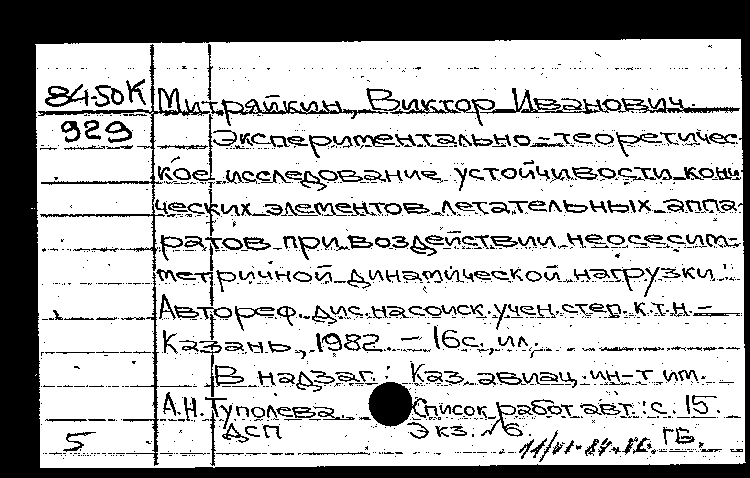 84-50К Митряйкин, Виктор Иванович.
929 Экспериментально-теоретичес-
кое исследование устойчивости кони-
ческих элементов летательных аппа-
ратов при воздействии неосесим-
метричной динамической нагрузки:
Автореф. дис. на соиск. учен. степ. к.т.н. -
Казань, 1982. - 16с., ил.
В надзаг.: Каз. авиац. ин-т им.
А.Н. Туполева. Список работ авт.: с. 15.
5 ДСП Экз. №6 ГБ.